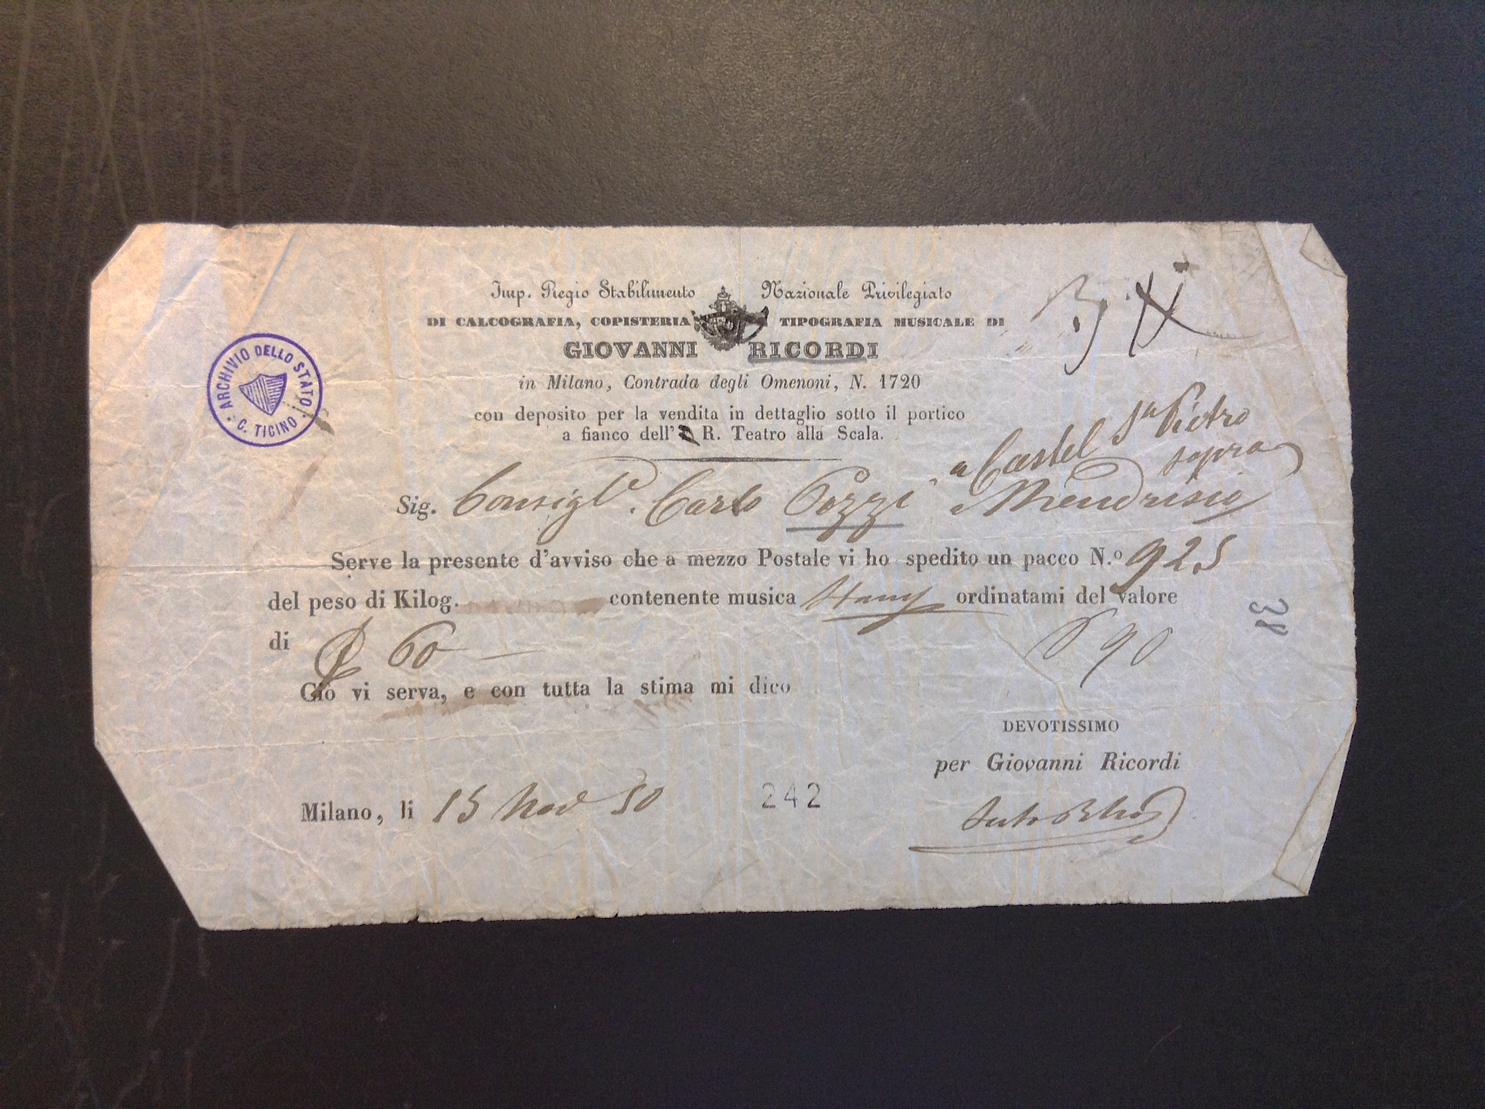 Imp. Regio Stabilimento Nazionale Privilegiato
DI CALCOGRAFIA, COPISTERIA TIPOGRAFIA MUSICALE DI
GIOVANNI RICORDI
in Milano, Contrada degli Omenoni, N. 1720
con deposito per la vendita in dettaglio sotto il portico
a fianco dell' R. Teatro alla Scala.
ARCHIVIO DELLO STATO
C. TICINO
a Castel Sn Pietro
sopra
Sig. Consiglre. Carlo Pozzi Mendrisio
Serve la presente d'avviso che a mezzo Postale vi ho spedito un pacco N.o 925
del peso di Kilog. contenente musica ordinatami del valore
di 60
90
38
Ciò vi serva, e con tutta la stima mi dico
DEVOTISSIMO
per Giovanni Ricordi
Milano, li 15 Nov 50
242